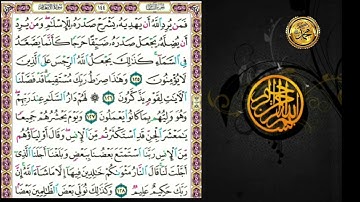 فَمَن يُرِدِ ٱللَّهُ أَن يَهْدِيَهُۥ يَشْرَحْ صَدْرَهُۥ لِلْإِسْلَٰمِ ۖ وَمَن يُرِدْ
أَن يُضِلَّهُۥ يَجْعَلْ صَدْرَهُۥ ضَيِّقًا حَرَجًا كَأَنَّمَا يَصَّعَّدُ
فِى ٱلسَّمَآءِ ۚ كَذَٰلِكَ يَجْعَلُ ٱللَّهُ ٱلرِّجْسَ عَلَى ٱلَّذِينَ
لَا يُؤْمِنُونَ ١٢٥ وَهَٰذَا صِرَٰطُ رَبِّكَ مُسْتَقِيمًا ۗ قَدْ فَصَّلْنَا
ٱلْءَايَٰتِ لِقَوْمٍ يَذَّكَّرُونَ ١٢٦ لَهُمْ دَارُ ٱلسَّلَٰمِ عِندَ رَبِّهِمْ ۖ
وَهُوَ وَلِيُّهُم بِمَا كَانُوا۟ يَعْمَلُونَ ١٢٧ وَيَوْمَ يَحْشُرُهُمْ جَمِيعًا
يَٰمَعْشَرَ ٱلْجِنِّ قَدِ ٱسْتَكْثَرْتُم مِّنَ ٱلْإِنسِ ۖ وَقَالَ أَوْلِيَآؤُهُم
مِّنَ ٱلْإِنسِ رَبَّنَا ٱسْتَمْتَعَ بَعْضُنَا بِبَعْضٍ وَبَلَغْنَآ أَجَلَنَا ٱلَّذِىٓ
أَجَّلْتَ لَنَا ۚ قَالَ ٱلنَّارُ مَثْوَىٰكُمْ خَٰلِدِينَ فِيهَآ إِلَّا مَا شَآءَ ٱللَّهُ ۗ إِنَّ
رَبَّكَ حَكِيمٌ عَلِيمٌ ١٢٨ وَكَذَٰلِكَ نُوَلِّى بَعْضَ ٱلظَّٰلِمِينَ بَعْضًۢا
محمد
بسم الله الرحمن الرحيم